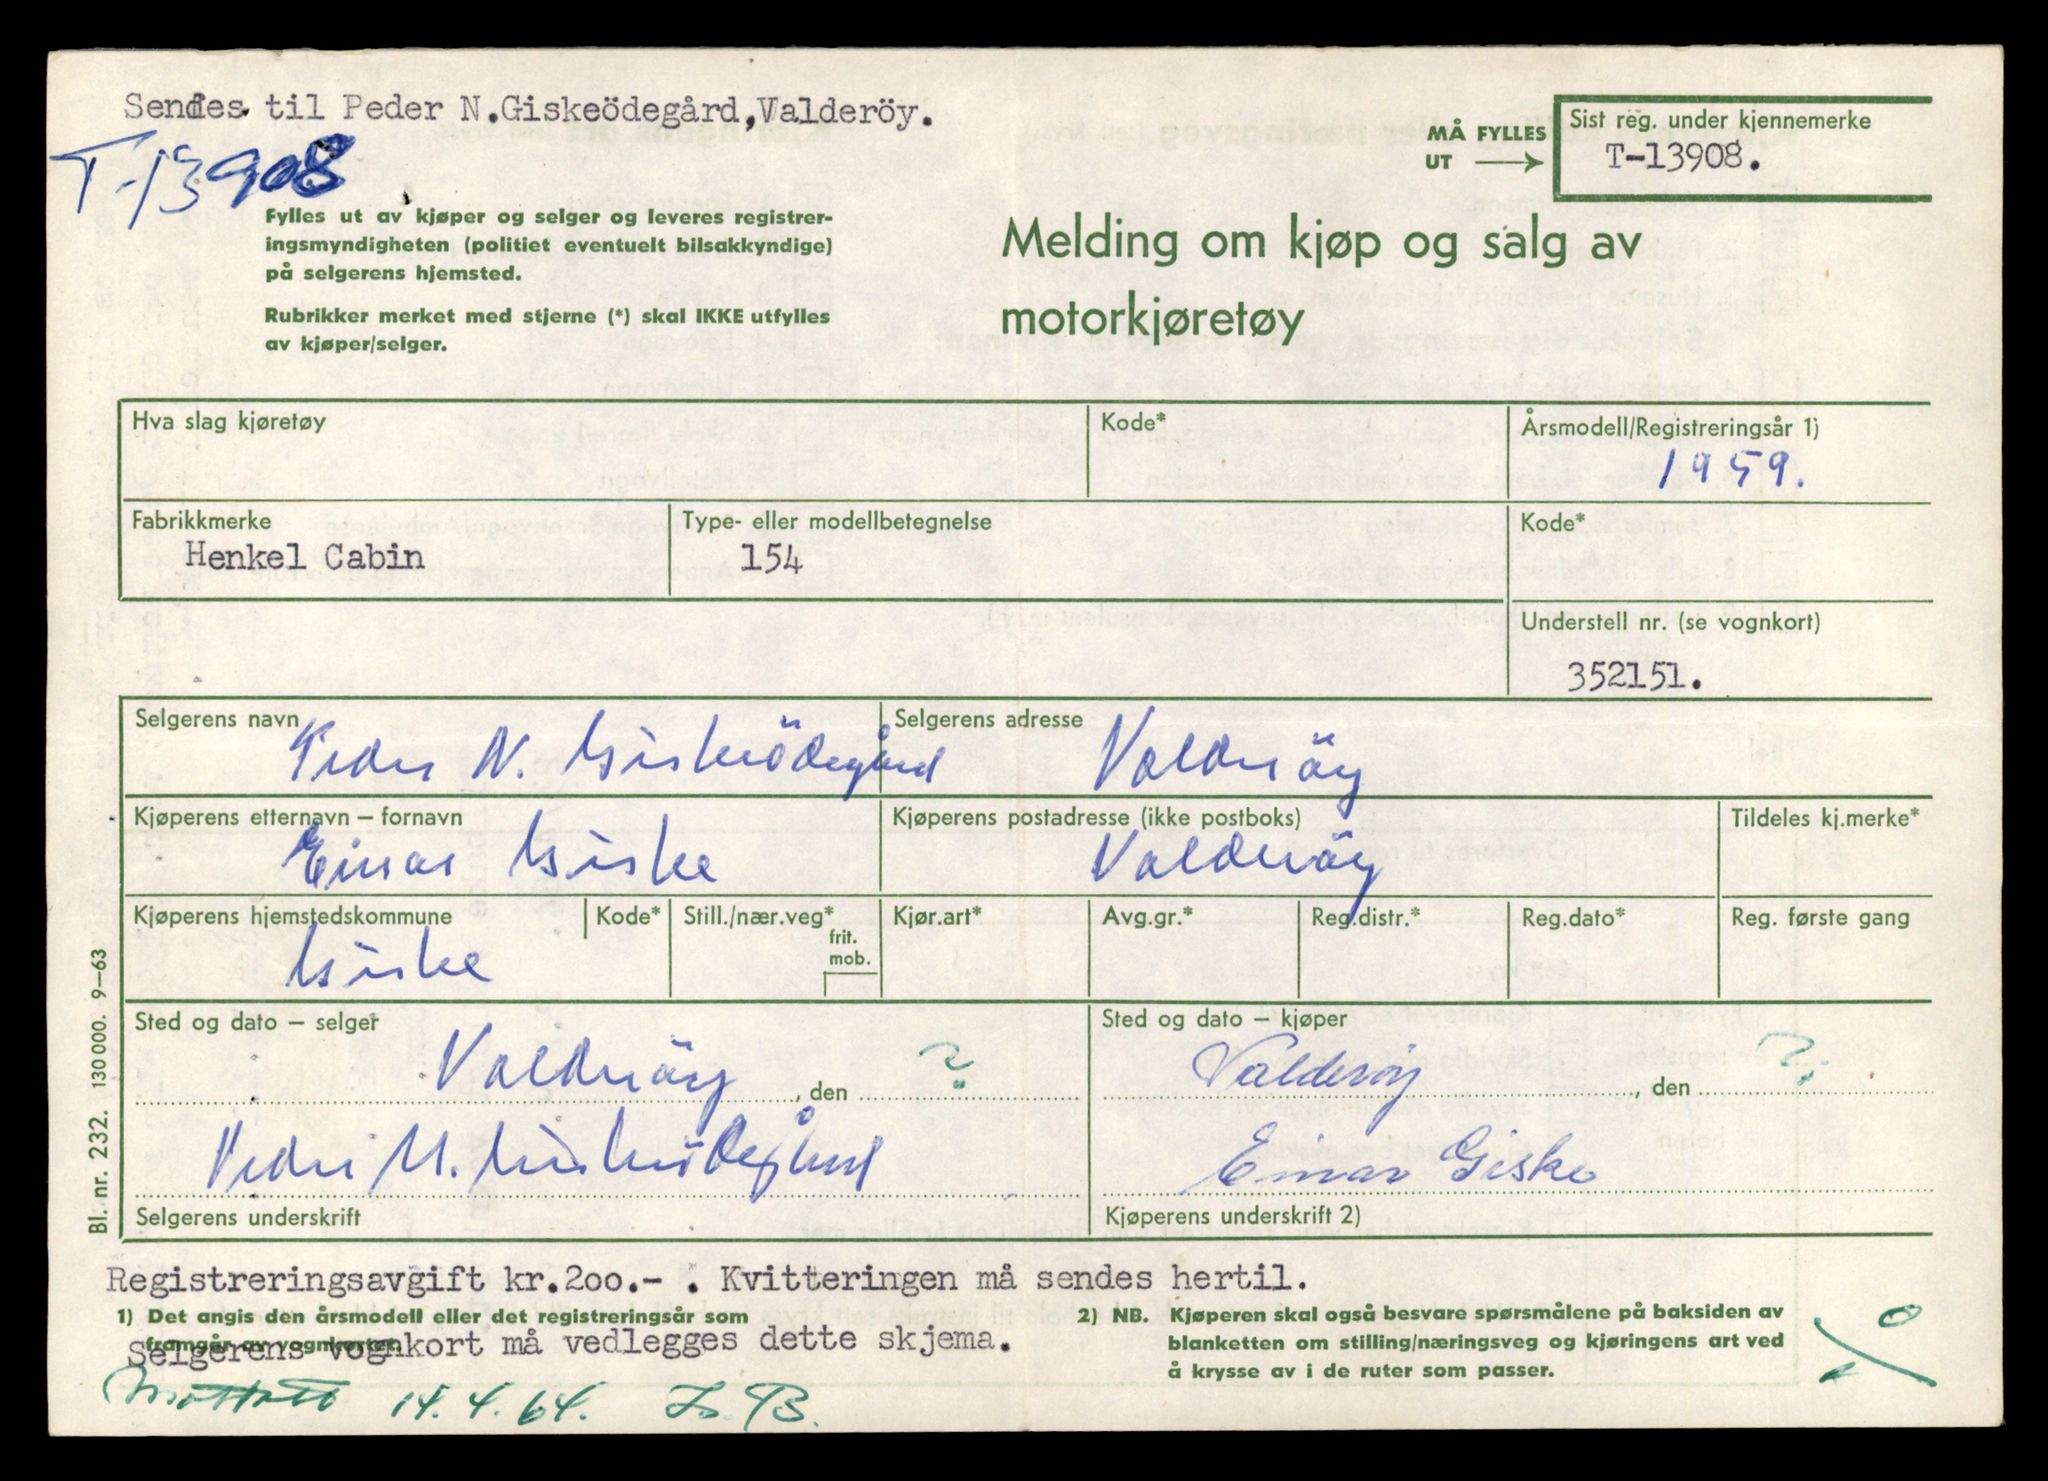 Sendes til Peder N.Giskeödegård,Valderöy.
T-13908
MÅ FYLLES
UT
Sist reg. under kjennemerke
T-13908.
Fylles ut av kjøper og selger og leveres registrer-
ingsmyndigheten (politiet eventuelt bilsakkyndige)
på selgerens hjemsted.
Rubrikker merket med stjerne (*) skal IKKE utfylles
av kjøper/selger.
Melding om kjøp og salg av
motorkjøretøy
Hva slag kjøretøy
Kode*
Årsmodell/Registreringsår 1)
1959.
Fabrikkmerke
Henkel Cabin
Type- eller modellbetegnelse
154
Kode*
Understell nr. (se vognkort)
352151.
Selgerens navn
Peder N. Giskeödegård
Selgerens adresse
Valderöy
Kjøperens etternavn – fornavn
Einar Giske
Kjøperens postadresse (ikke postboks)
Valderöy
Tildeles kj.merke*
Kjøperens hjemstedskommune
Giske
Kode*
Still./nær.veg*
frit.
mob.
Kjør.art*
Avg.gr.*
Reg.distr.*
Reg.dato*
Reg. første gang
Sted og dato – selger
Valderöy, den ?
Peder N. Giskeödegård
Selgerens underskrift
Sted og dato – kjøper
Valderöy, den ?
Einar Giske
Kjøperens underskrift 2)
Bl. nr. 232. 130 000. 9–63
Registreringsavgift kr.200.- . Kvitteringen må sendes hertil.
1) Det angis den årsmodell eller det registreringsår som
framgår av vognkortet.
Selgerens vognkort må vedlegges dette skjema.
2) NB. Kjøperen skal også besvare spørsmålene på baksiden av
blanketten om stilling/næringsveg og kjøringens art ved
å krysse av i de ruter som passer.
Mottatt 14.4.64. L. B.